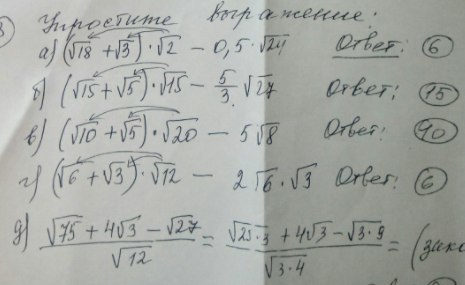 Упростите выражение:
а) (√18 + √3) · √2 − 0,5 · √24 Ответ: 6
б) (√15 + √5) · √15 − 5/3 √27 Ответ: 15
в) (√10 + √5) · √20 − 5√8 Ответ: 10
г) (√6 + √3) · √12 − 2√6 · √3 Ответ: 6
д) (√75 + 4√3 − √27)/√12 = (√25·3 + 4√3 − √3·9)/√3·4 = (зако